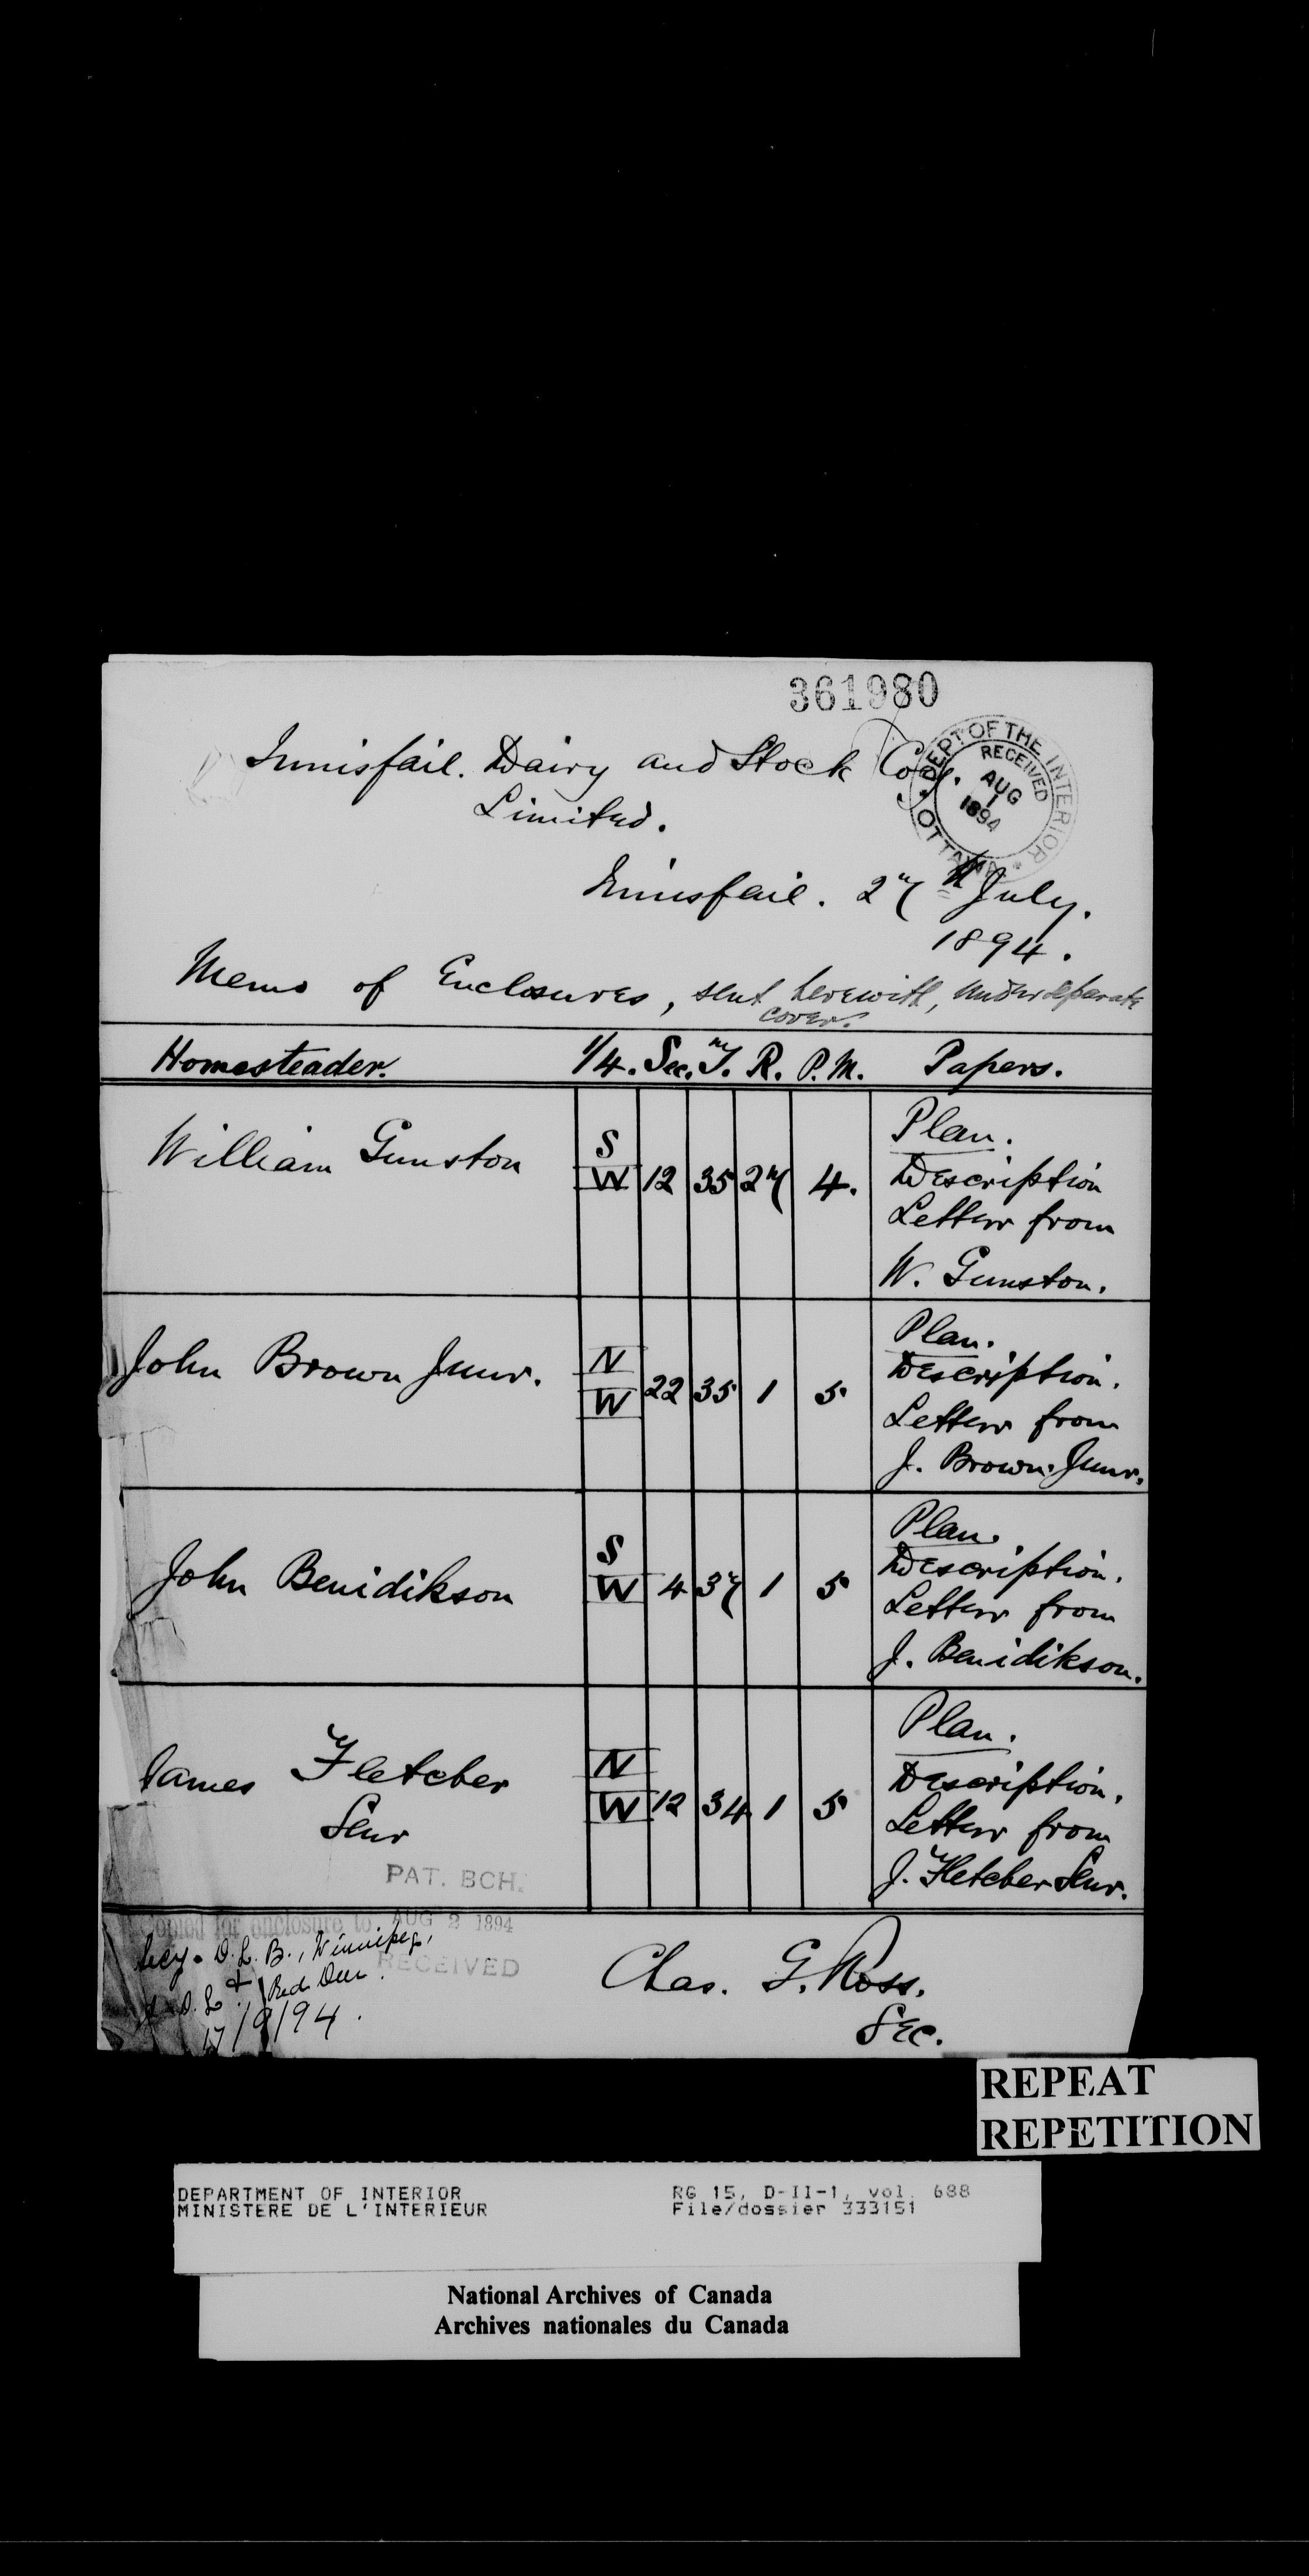 361980
Innisfail. Dairy and Stock Coy.
Limited.
DEPT OF THE INTERIOR
RECEIVED
AUG
1
1894
OTTAWA
Innisfail. 27th July.
1894.
Memo of Enclosures, sent herewith, under separate
cover.
Homesteader. 1/4. Sec. T. R. P.M. Papers.
William Gunston S W 12 35 27 4. Plan.
Description
Letter from
W. Gunston.
John Brown Junr. N W 22 35 1 5 Plan.
Description.
Letter from
J. Brown. Junr.
John Benidikson S W 4 37 1 5 Plan.
Description.
Letter from
J. Benidikson.
James Fletcher N W 12 34 1 5 Plan.
Senr
Description.
Letter from
J. Fletcher Senr.
PAT. BCH.
AUG 2 1894
RECEIVED
Copied for enclosure to
Secy. D.L.B., Winnipeg,
D.L. Red Deer.
17/9/94.
Chas. G. Ross.
Sec.
REPEAT
REPETITION
DEPARTMENT OF INTERIOR RG 15, D-II-1, vol. 688
MINISTERE DE L'INTERIEUR File/dossier 333151
National Archives of Canada
Archives nationales du Canada